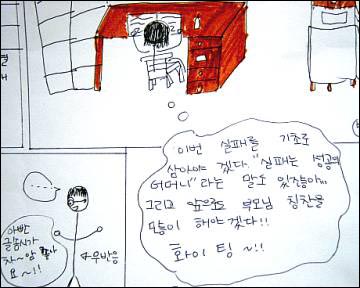 이번 실패를 기초로
삼아야 겠다. "실패는 성공의
어머니"라는 말도 있잖아..
그리고 앞으로 부모님 칭찬을
많이 해야겠다!!
화이팅~!!
....
아빤
글솜시가
자~암
요~!!
무반응